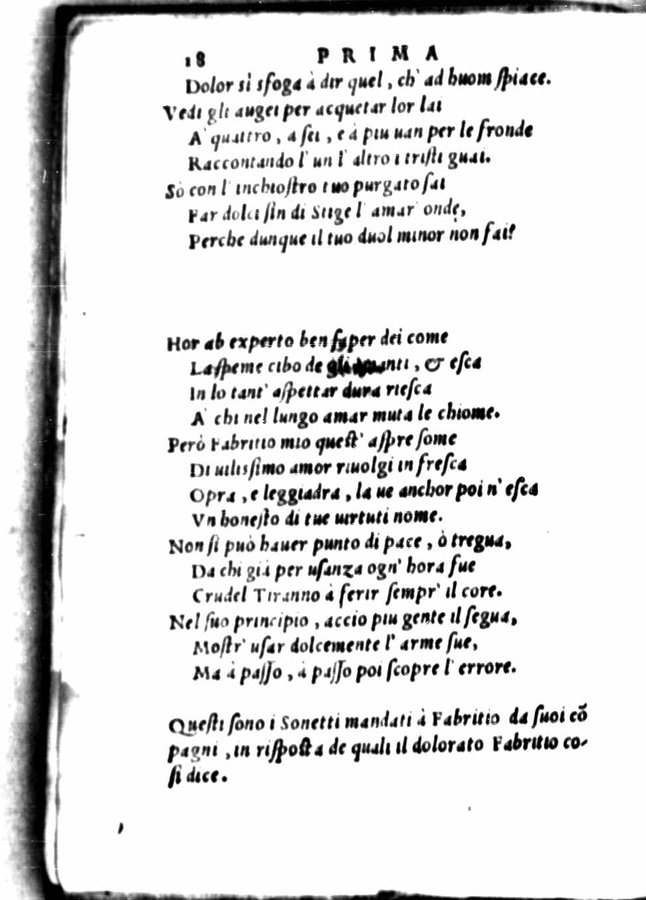 18 PRIMA
Dolor si sfoga à dir quel, ch' ad huom spiace.
Vedi gli augei per acquetar lor lai
A' quattro, a sei, e à piu uan per le fronde
Raccontando l' un l' altro i tristi guai.
Sò con l' inchiostro tuo purgato sai
Far dolci sin di Stige l' amar' onde,
Perche dunque il tuo duol minor non fai?
Hor ab experto ben saper dei come
La speme cibo de gli amanti, & esca
In lo tant' aspettar dura riesca
A' chi nel lungo amar muta le chiome.
Però Fabritio mio quest' aspre some
Di uilissimo amor riuolgi in fresca
Opra, e leggiadra, la ue anchor poi n' esca
Vn honesto di tue uirtuti nome.
Non si può hauer punto di pace, ò tregua,
Da chi già per usanza ogn' hora fue
Crudel Tiranno à ferir sempr' il core.
Nel suo principio, accio piu gente il segua,
Mostr' usar dolcemente l' arme sue,
Ma à passo, à passo poi scopre l' errore.
Questi sono i Sonetti mandati à Fabritio da suoi cō
pagni, in risposta de quali il dolorato Fabritio co-
si dice.